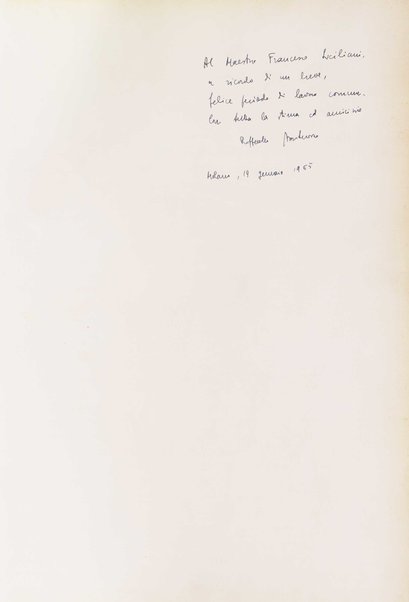 Al Maestro Francesco Siciliani,
a ricordo di un breve,
felice periodo di lavoro comune.
Con tutta la stima ed amicizia
Raffaello
Milano, 19 gennaio 1985